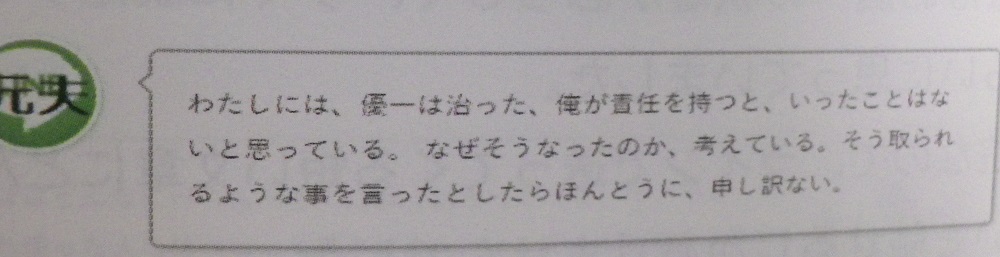 元夫
わたしには、優一は治った、俺が責任を持つと、いったことはな
いと思っている。 なぜそうなったのか、考えている。そう取られ
るような事を言ったとしたらほんとうに、申し訳ない。